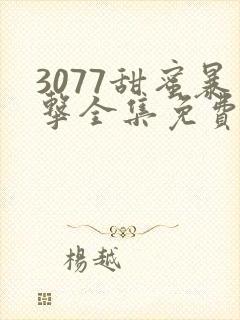 3077甜蜜暴
擊全集免費
楊越